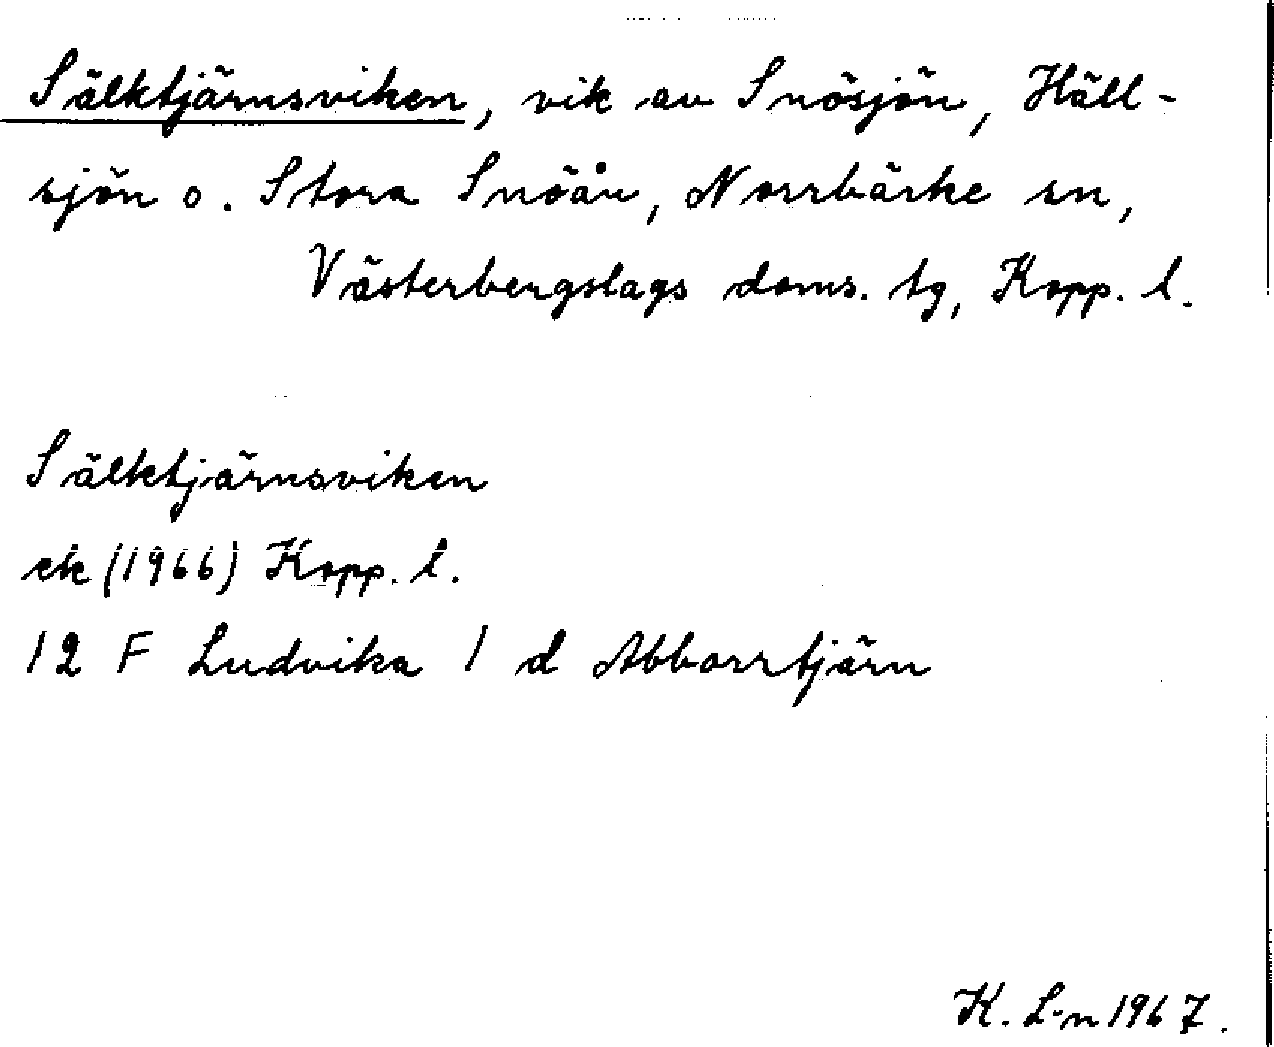 Sälktjärnsviken, vik av Snösjön, Häll-
sjön o. Stora Snöån, Norrbärke sn,
Västerbergslags doms. tg, Kopp. l.
Sälktjärnsviken
ek (1966) Kopp. l.
12 F Ludvika 1 d Abborrtjärn
K. L-n 1967.